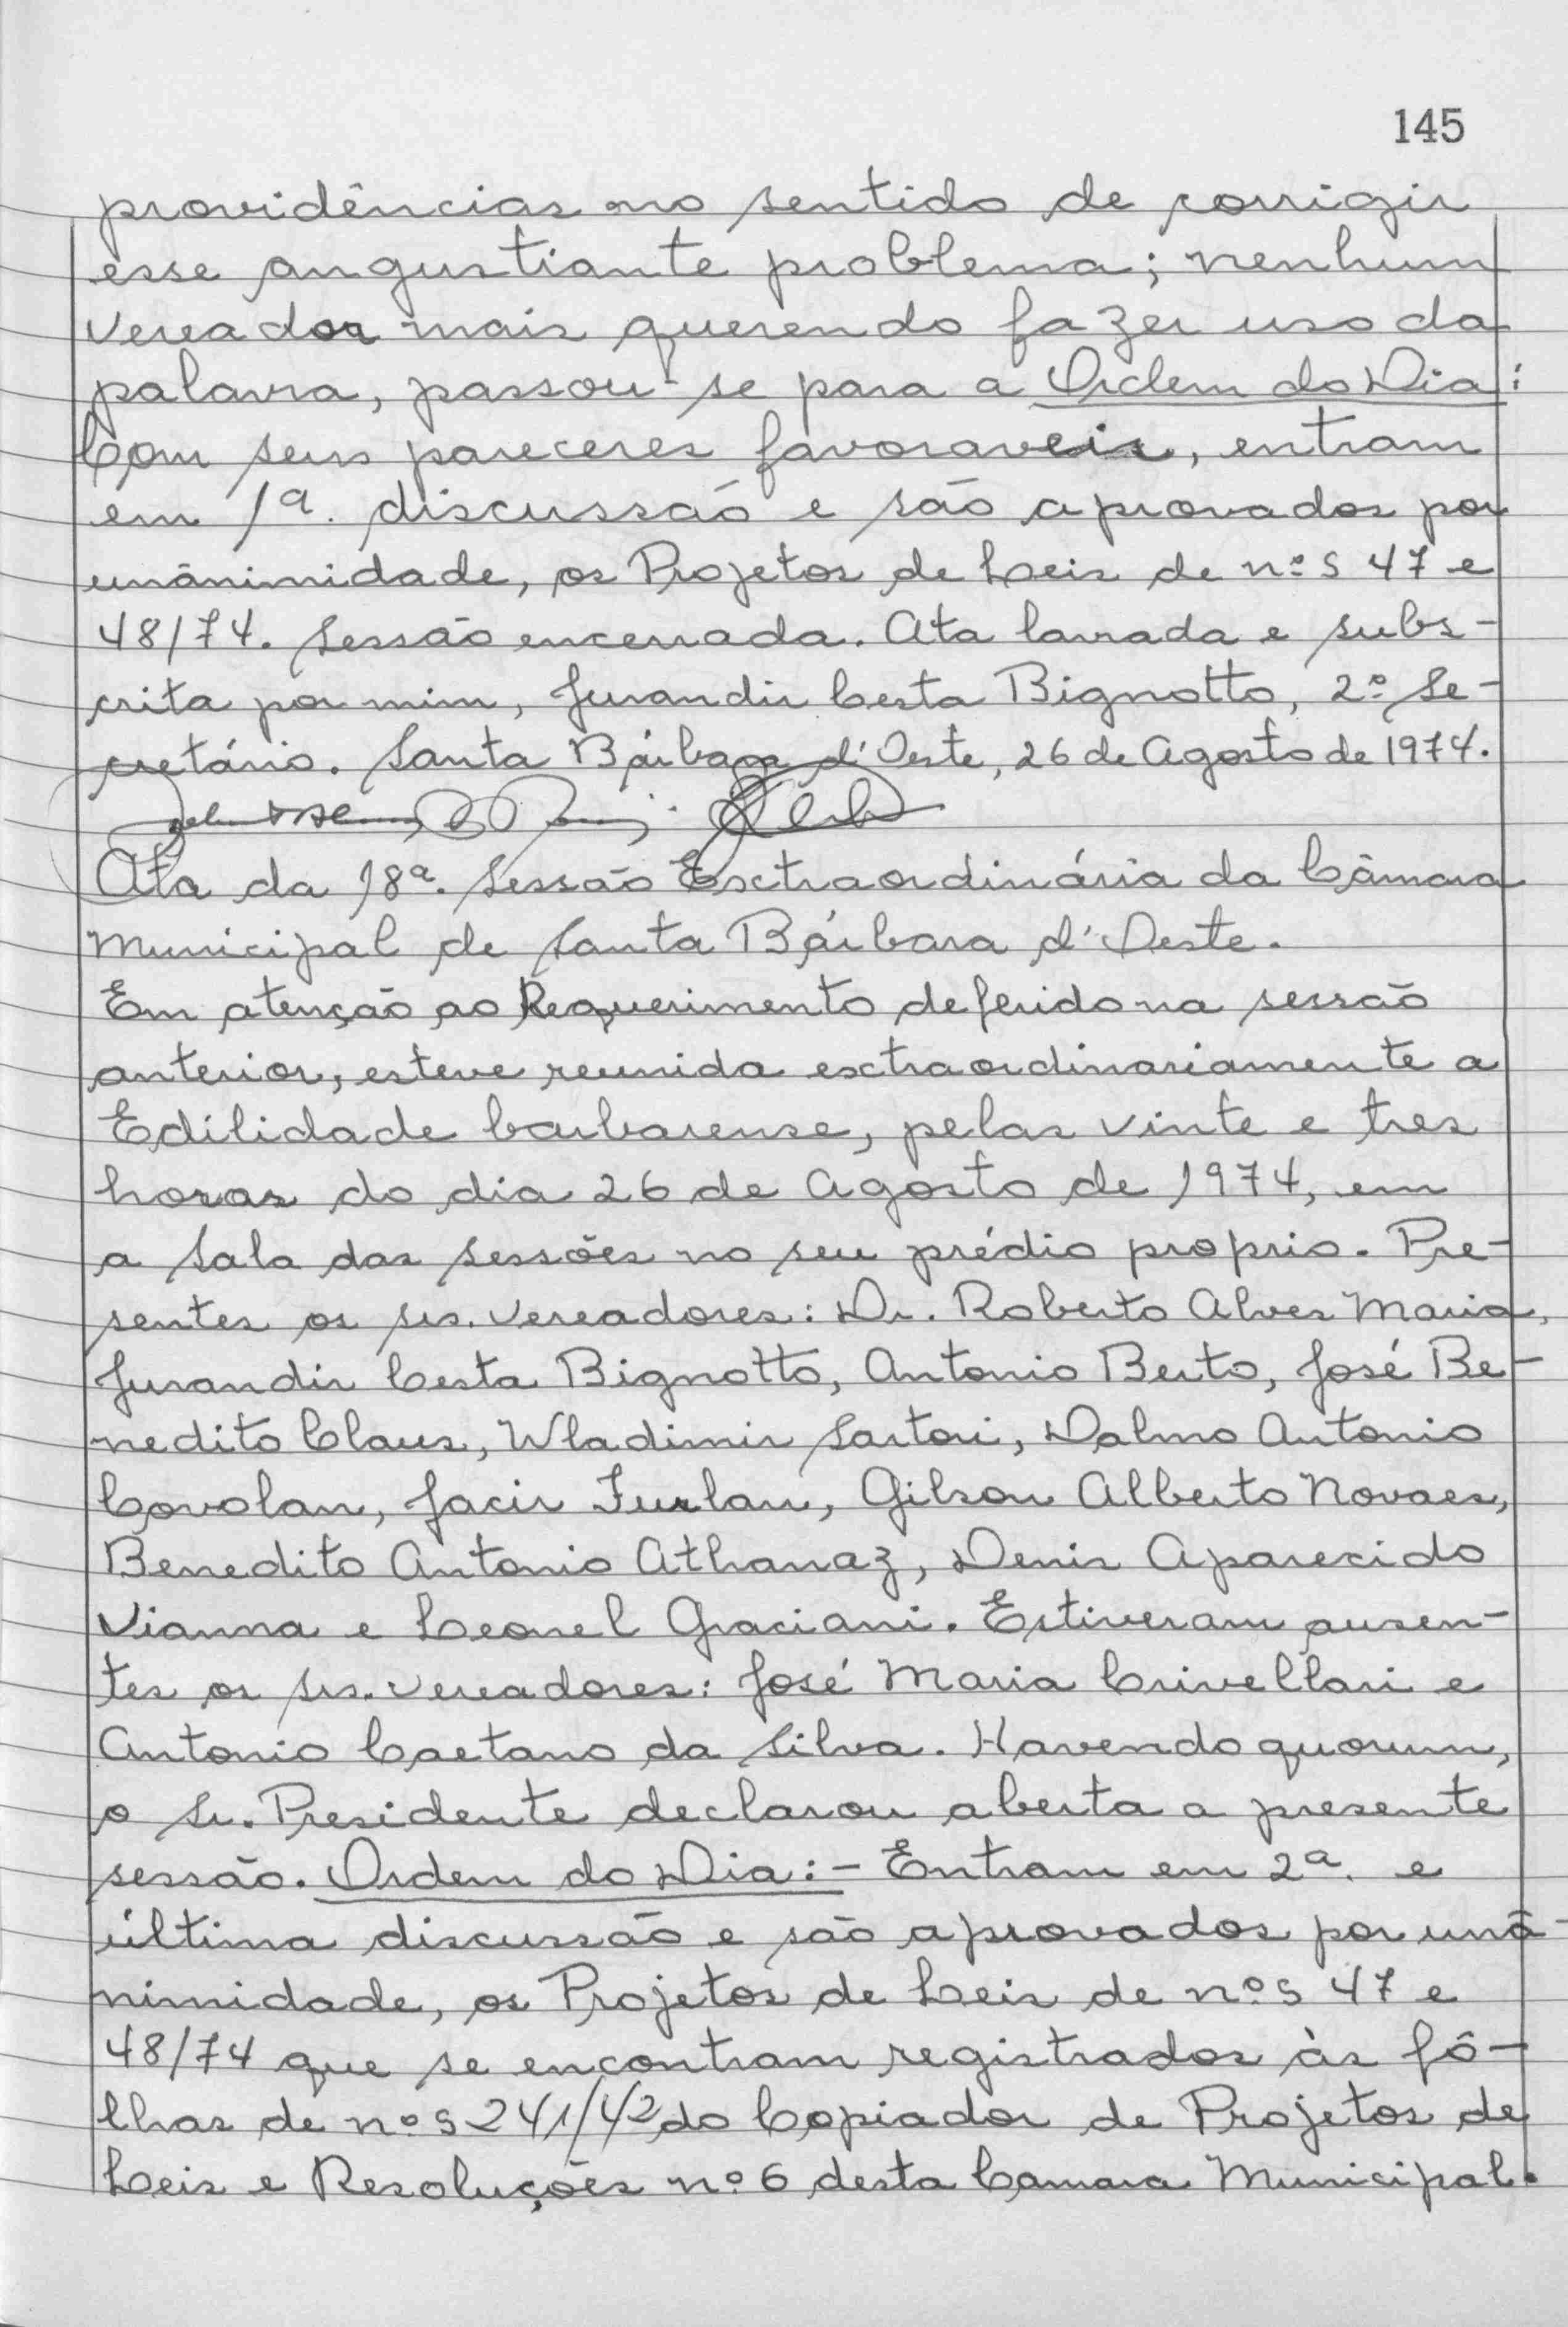 145
providências no sentido de corrigir
esse angustiante problema; nenhum
vereador mais querendo fazer uso da
palavra, passou-se para a Ordem do Dia:
Com seus pareceres favoraveis, entram
em 1ª. discussão e são aprovados por
unânimidade, os Projetos de Leis de nºs 47 e
48/74. Sessão encerrada. Ata lavrada e subs-
crita por mim, Jurandir Cesta Bignotto, 2º Se-
cretário. Santa Bárbara d'Oeste, 26 de Agosto de 1974.
Ata da 18ª. Sessão Extraordinária da Câmara
Municipal de Santa Bárbara d'Oeste.
Em atenção ao Requerimento deferido na sessão
anterior, esteve reunida extraordinariamente a
Edilidade barbarense, pelas vinte e tres
horas do dia 26 de Agosto de 1974, em
a Sala das sessões no seu prédio proprio. Pre-
sentes os srs. vereadores: Dr. Roberto Alves Maria,
Jurandir Cesta Bignotto, Antonio Berto, José Be-
nedito Claus, Wladimir Sartori, Dalmo Antonio
Covolan, Jacir Furlan, Gilson Alberto Novaes,
Benedito Antonio Athanaz, Denis Aparecido
Vianna e Leonel Graciani. Estiveram ausen-
tes os srs. vereadores: José Maria Crivellari e
Antonio Caetano da Silva. Havendo quorum,
o Sr. Presidente declarou aberta a presente
sessão. Ordem do Dia:- Entram em 2ª. e
última discussão e são aprovados por unâ-
nimidade, os Projetos de Leis de nºs 47 e
48/74 que se encontram registrados às fô-
lhas de nºs 241/42 do Copiador de Projetos de
Leis e Resoluções nº 6 desta Camara Municipal.